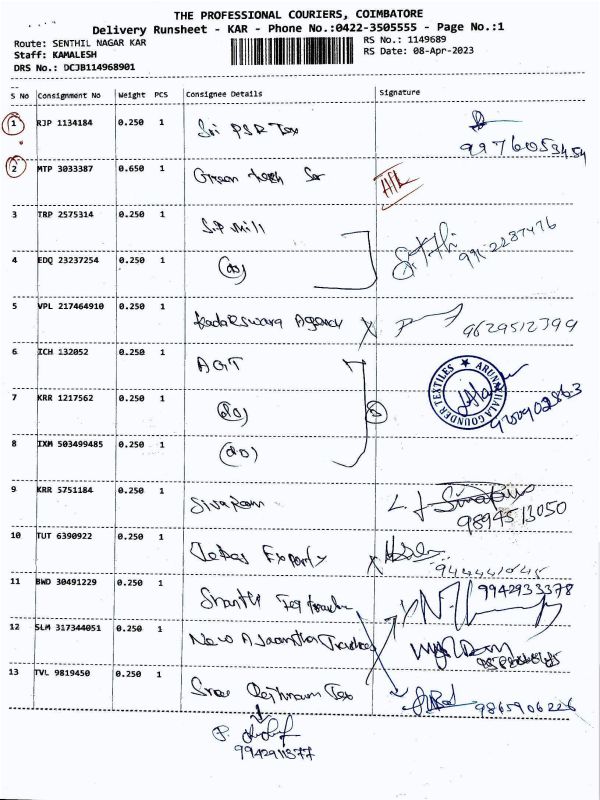 THE PROFESSIONAL COURIERS, COIMBATORE
Delivery Runsheet - KAR - Phone No.:0422-3505555 - Page No.:1
Route: SENTHIL NAGAR KAR
RS No.: 1149689
Staff: KAMALESH
RS Date: 08-Apr-2023
DRS No.: DCJB114968901
S No Consignment No Weight PCS Consignee Details Signature
1 RJP 1134184 0.250 1 Sri PSR Tex
9976053454
2 MTP 3033387 0.650 1 Green
3 TRP 2575314 0.250 1 S.P mill
4 EDQ 23237254 0.250 1 (do)
5 VPL 217464910 0.250 1 Agency X 9629512399
6 ICH 132052 0.250 1 AGT
ARUNACHALA GOUNDER TEXTILES
7 KRR 1217562 0.250 1 (do)
8 IXM 503499485 0.250 1 (do)
9 KRR 5751184 0.250 1 Sivaram
9894513050
10 TUT 6390922 0.250 1 X
11 BWD 30491229 0.250 1 Shanthi 9942933378
12 SLM 317344051 0.250 1 New Ajantha Traders
13 TVL 9819450 0.250 1 Sree Tex 9865906226
9942911377